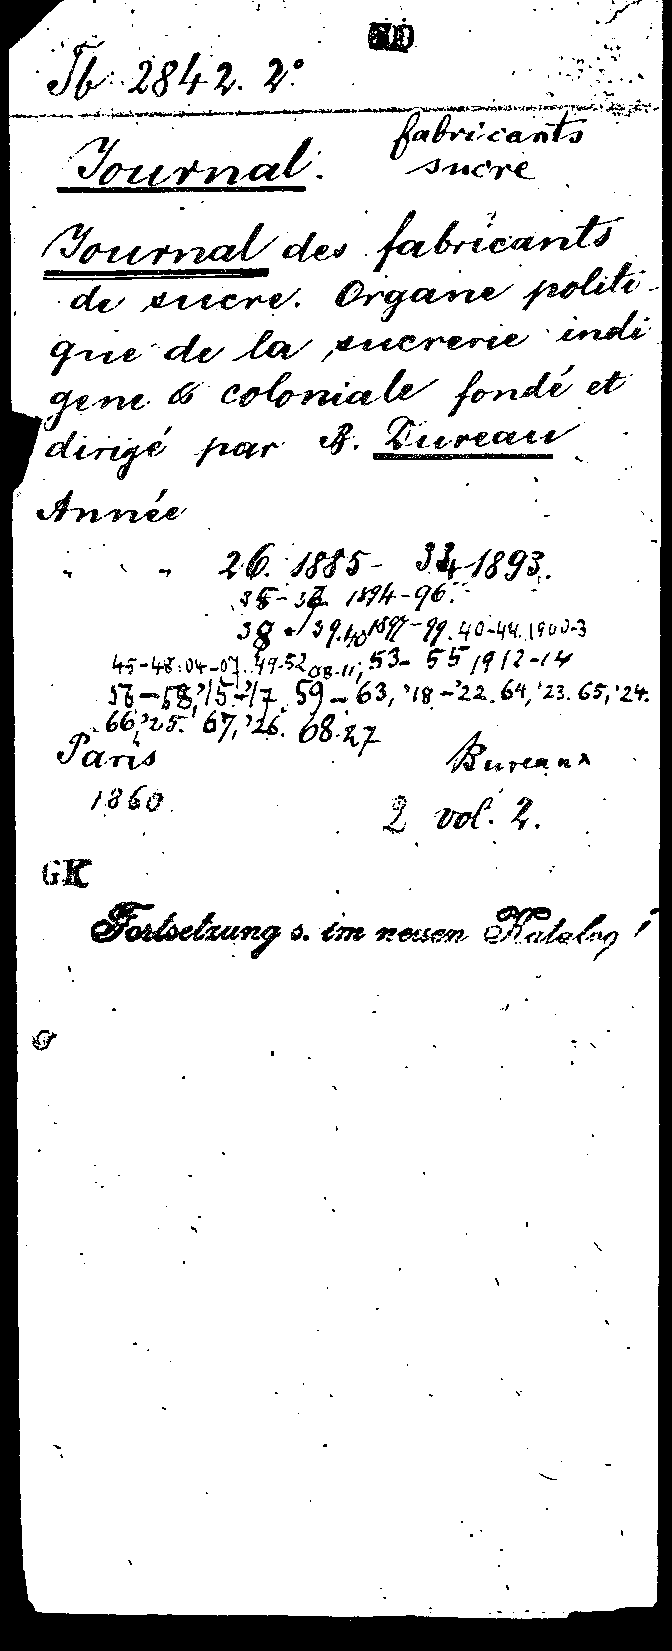 Tb 2842. 2°
fabricants
Journal. sucre
Journal des fabricants
de sucre. Organe politi-
que de la sucrerie indi
gene & coloniale fondé et
dirigé par B. Dureau
Année
" " " 26. 1885 - 34 1893.
35-37. 1894-96.
38 - 39.40 1897-99. 40-44. 1900-3
45-48. 04-07. 49-52 08-11; 53- 55 1912-14
56-58, '15-'17. 59-63, '18-'22. 64, '23. 65, '24.
66, '25. 67, '26. 68. 27
Paris Bureaux
1860. 2 vol. 2.
GK
Fortsetzung s. im neuen Katalog!